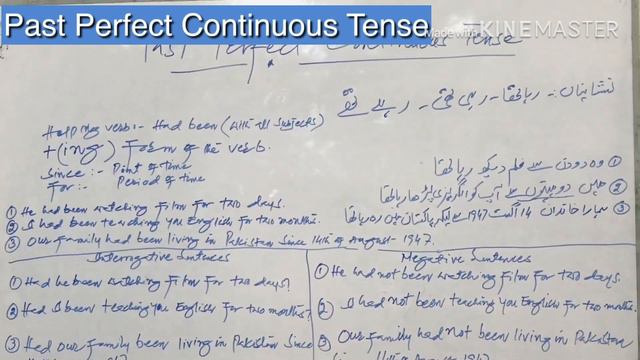 Past Perfect Continuous Tense
Made with KINEMASTER
Past Perfect Continuous Tense
نشانیاں:- رہا تھا - رہی تھی - رہے تھے
Helping verb:- Had been (with all subjects)
+(ing) Form of the verb.
Since:- Point of time
For:- Period of time
① وہ دو دن سے فلم دیکھ رہا تھا
② میں دو مہینوں سے آپ کو انگریزی پڑھا رہا تھا
③ ہمارا خاندان 14 اگست 1947 سے لیکر پاکستان میں رہ رہا تھا
① He had been watching Film For two days.
② I had been teaching you English for two months.
③ Our family had been living in Pakistan Since 14th of August-1947.
Interrogative Sentences
① Had he been watching Film For two days?
② Had I been teaching you English For two months?
③ Had our family been living in Pakistan Since
Negative Sentences
① He had not been watching Film For two days.
② I had not been teaching you English For two months.
③ Our family had not been living in Pakistan